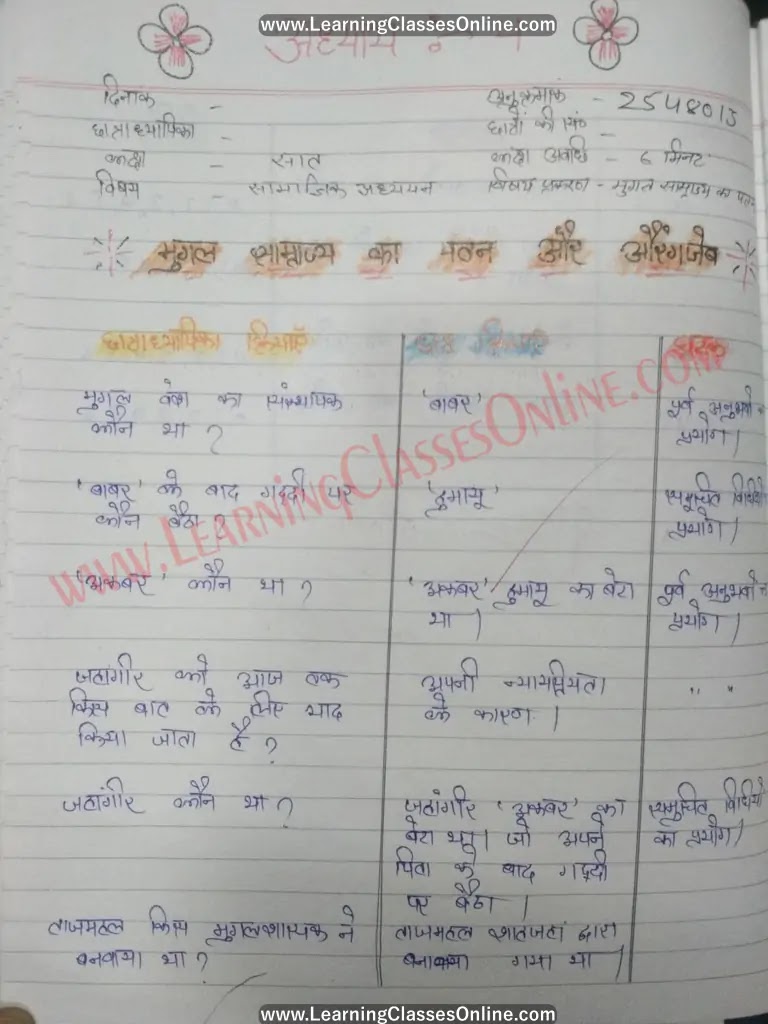 www.LearningClassesOnline.com
अध्याय
दिनांक -
अनुक्रमांक - 2548013
छात्राध्यापिका -
छात्रों की सं० -
कक्षा - सात
कक्षा अवधि - 6 मिनट
विषय - सामाजिक अध्ययन
विषय प्रकरण - मुगल साम्राज्य का पतन
मुगल साम्राज्य का पतन और औरंगजेब
छात्राध्यापिका क्रियाएँ
छात्र क्रियाएँ
घटक
मुगल वंश का संस्थापक
कौन था ?
'बाबर'
पूर्व अनुभवो का
प्रयोग।
'बाबर' के बाद गद्दी पर
कौन बैठा ?
'हुमायू'
समुचित विधियो
प्रयोग।
'अकबर' कौन था ?
'अकबर' हुमायू का बेटा
था।
पूर्व अनुभवो का
प्रयोग।
जहांगीर को आज तक
किस बात के लिए याद
किया जाता है ?
अपनी न्यायप्रियता
के कारण।
" "
जहांगीर कौन था ?
जहांगीर 'अकबर' का
बेटा था। जो अपने
पिता के बाद गद्दी
पर बैठा।
समुचित विधियो
का प्रयोग।
ताजमहल किस मुगलशासक ने
बनवाया था ?
ताजमहल शाहजहां द्वारा
बनाबाया गया था।
www.LearningClassesOnline.com
www.LearningClassesOnline.com